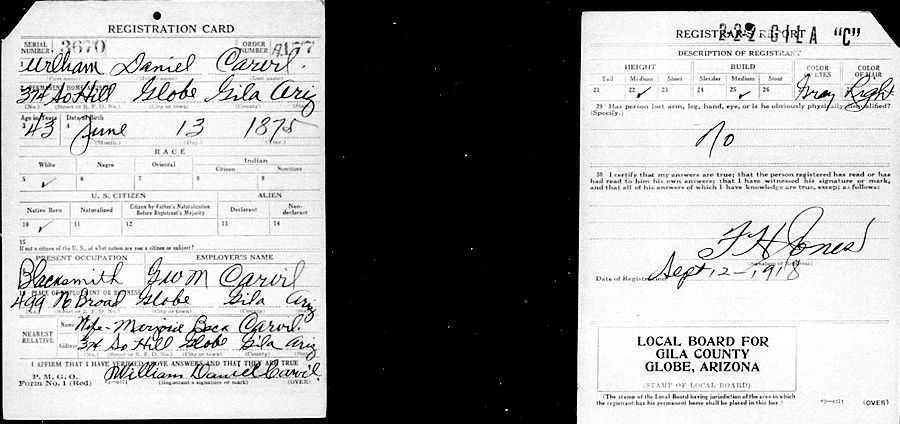 REGISTRATION CARD
SERIAL NUMBER 3670 ORDER NUMBER A177
William Daniel Carvil
(First name) (Middle name) (Last name)
PERMANENT HOME ADDRESS
34 So Hill Globe Gila Ariz
(No.) (Street or R. F. D. No.) (City or town) (County) (State)
Age in Years Date of Birth
43 June 13 1875
(Month.) (Day.) (Year.)
RACE
White Negro Oriental Indian
Citizen Noncitizen
5 ✓ 6 7 8 9
U. S. CITIZEN ALIEN
Native Born Naturalized Citizen by Father's Naturalization Before Registrant's Majority Declarant Non-declarant
10 ✓ 11 12 13 14
15
If not a citizen of the U. S., of what nation are you a citizen or subject?
PRESENT OCCUPATION EMPLOYER'S NAME
Blacksmith GWM Carvil
PLACE OF EMPLOYMENT OR BUSINESS
499 N Broad Globe Gila Ariz
(No.) (Street or R. F. D. No.) (City or town) (County) (State)
NEAREST RELATIVE
Name Wife - Marjorie Carvil
Address 34 So Hill Globe Gila Ariz
(No.) (Street or R. F. D. No.) (City or town) (County) (State)
I AFFIRM THAT I HAVE VERIFIED ABOVE ANSWERS AND THAT THEY ARE TRUE
P. M. G. O.
Form No. 1 (Red) William Daniel Carvil
(Registrant's signature or mark) (OVER)
GILA "C"
REGISTRAR'S REPORT
DESCRIPTION OF REGISTRANT
HEIGHT BUILD COLOR OF EYES COLOR OF HAIR
Tall Medium Short Slender Medium Stout
21 22 ✓ 23 24 25 ✓ 26 Gray Light
29 Has person lost arm, leg, hand, eye, or is he obviously physically disqualified?
(Specify.)
No
30 I certify that my answers are true; that the person registered has read or has
had read to him his own answers; that I have witnessed his signature or mark,
and that all of his answers of which I have knowledge are true, except as follows:
F H Jones
(Signature of Registrar)
Date of Registration Sept 12-1918
LOCAL BOARD FOR
GILA COUNTY
GLOBE, ARIZONA
(STAMP OF LOCAL BOARD)
(The stamp of the Local Board having jurisdiction of the area in which
the registrant has his permanent home shall be placed in this box.)
(OVER)